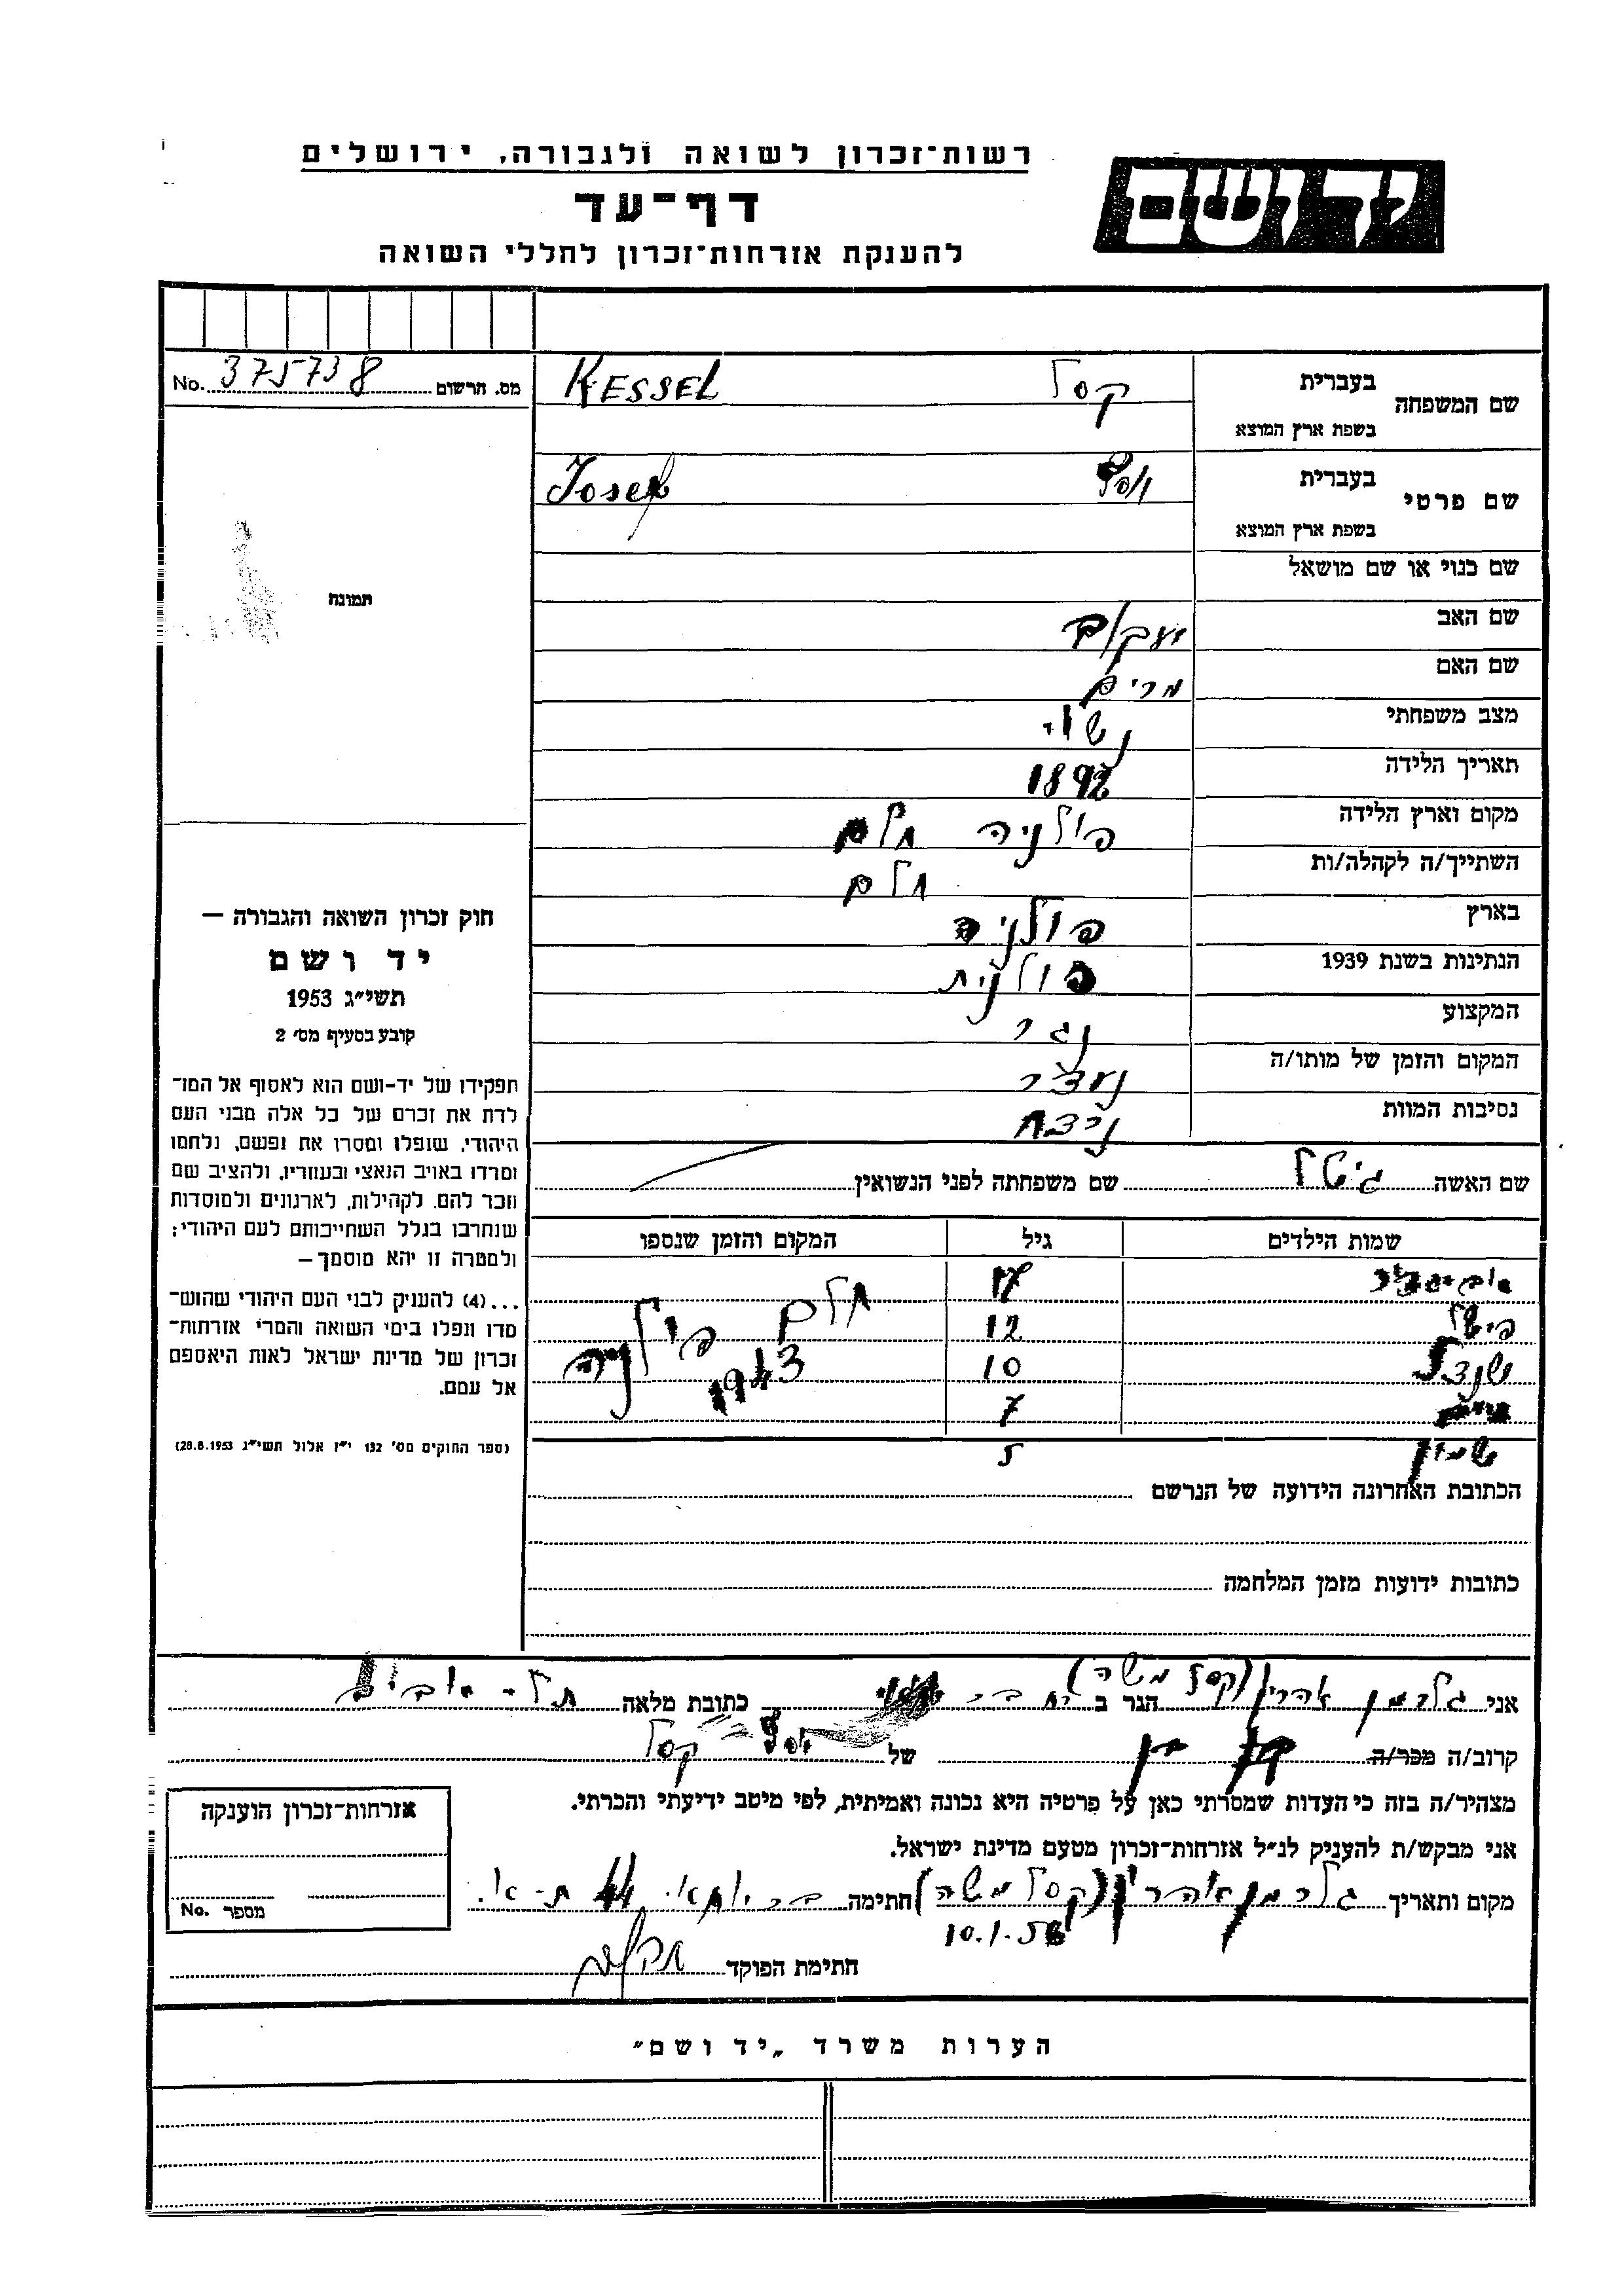 רשות־זכרון לשואה ולגבורה, ירושלים
יד ושם
דף־עד
להענקת אזרחות־זכרון לחללי השואה
מס. הרשום No. 375738
שם המשפחה בעברית קסל KESSEL
בשפת ארץ המוצא
שם פרטי בעברית יוסף Josef
בשפת ארץ המוצא
שם כנוי או שם מושאל
שם האב יעקוב
שם האם מרים
מצב משפחתי נשוי
תאריך הלידה 1892
מקום וארץ הלידה פולניה חלם
השתייך/ה לקהלה/ות חלם
בארץ פולניה
הנתינות בשנת 1939 פולנית
המקצוע נגר
המקום והזמן של מותו/ה
נסיבות המוות
שם האשה גיטל שם משפחתה לפני הנשואין
שמות הילדים גיל המקום והזמן שנספו
17 חלם פולניה 1943
12
שנדל 10
7
שמעון 5
הכתובת האחרונה הידועה של הנרשם
כתובות ידועות מזמן המלחמה
תמונה
חוק זכרון השואה והגבורה —
יד ושם
תשי״ג 1953
קובע בסעיף מס׳ 2
תפקידו של יד-ושם הוא לאסוף אל המו־
לדת את זכרם של כל אלה מבני העם
היהודי, שנפלו ומסרו את נפשם, נלחמו
ומרדו באויב הנאצי ובעוזריו, ולהציב שם
וזכר להם, לקהילות, לארגונים ולמוסדות
שנחרבו בגלל השתייכותם לעם היהודי;
ולמטרה זו יהא מוסמך—
...(4) להעניק לבני העם היהודי שהוש־
מדו ונפלו בימי השואה והמרי אזרחות־
זכרון של מדינת ישראל לאות היאספם
אל עמם.
(ספר החוקים מס׳ 132 י״ז אלול תשי״ג 28.8.1953)
אני גלרמן אהרון (קסל משה) הגר ב כתובת מלאה תל-אביב
קרוב/ה מכר/ה בן של יוסף קסל
מצהיר/ה בזה כי העדות שמסרתי כאן על פרטיה היא נכונה ואמיתית, לפי מיטב ידיעתי והכרתי.
אני מבקש/ת להעניק לנ״ל אזרחות־זכרון מטעם מדינת ישראל.
מקום ותאריך גלרמן אהרון (קסל משה) חתימה 44 ת-א.
10.1.56
חתימת הפוקד
אזרחות־זכרון הוענקה
מספר No.
הערות משרד „יד ושם״